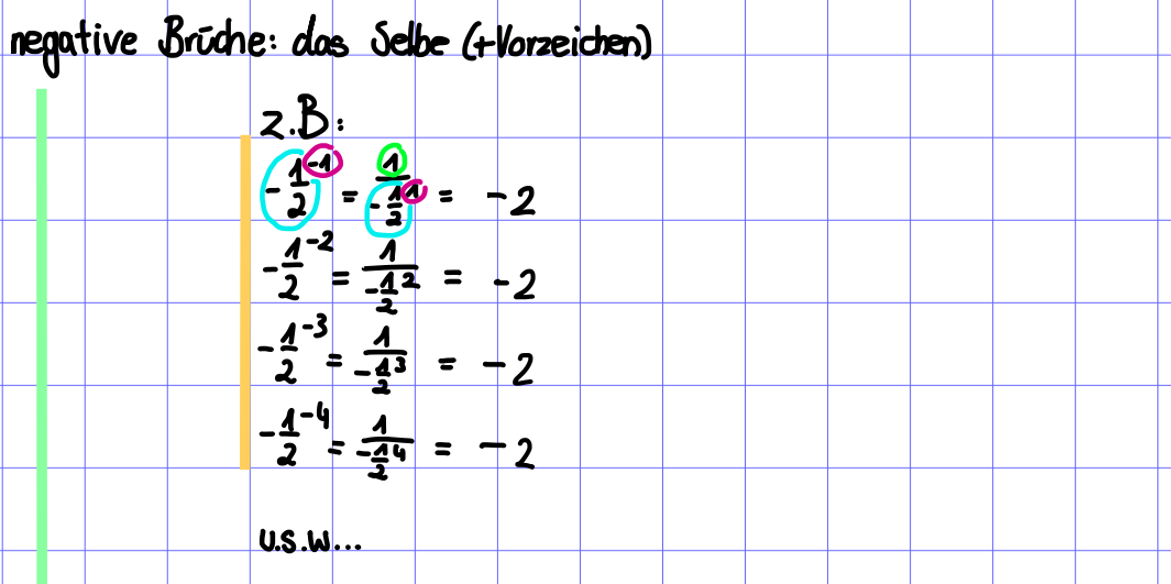 negative Brüche: das Selbe (+Vorzeichen)
z.B:
-1/2^-1 = 1/(-1/2^1) = -2
-1/2^-2 = 1/(-1/2^2) = -2
-1/2^-3 = 1/(-1/2^3) = -2
-1/2^-4 = 1/(-1/2^4) = -2
u.s.w...